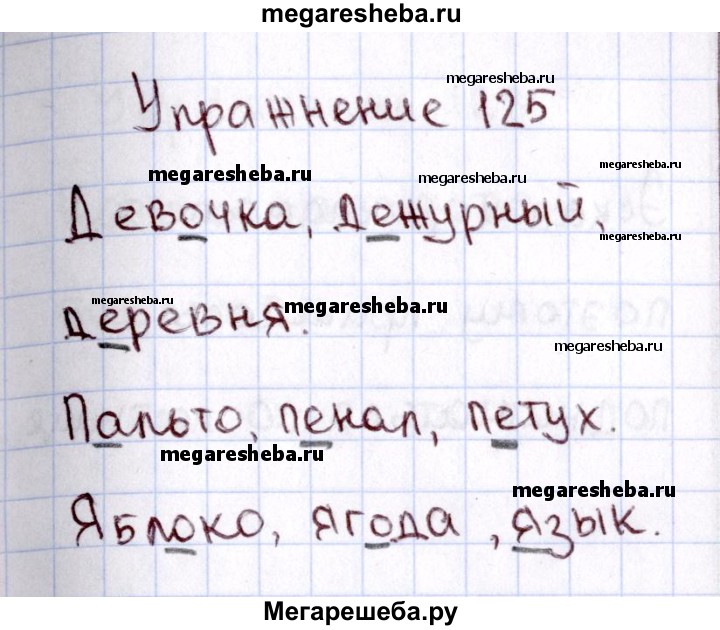 megaresheba.ru
megaresheba.ru
Упражнение 125
megaresheba.ru
megaresheba.ru
Девочка, дежурный,
megaresheba.ru
megaresheba.ru
megaresheba.ru
деревня.
megaresheba.ru
Пальто, пенал, петух.
megaresheba.ru
megaresheba.ru
Яблоко, ягода, язык.
Мегарешеба.ру